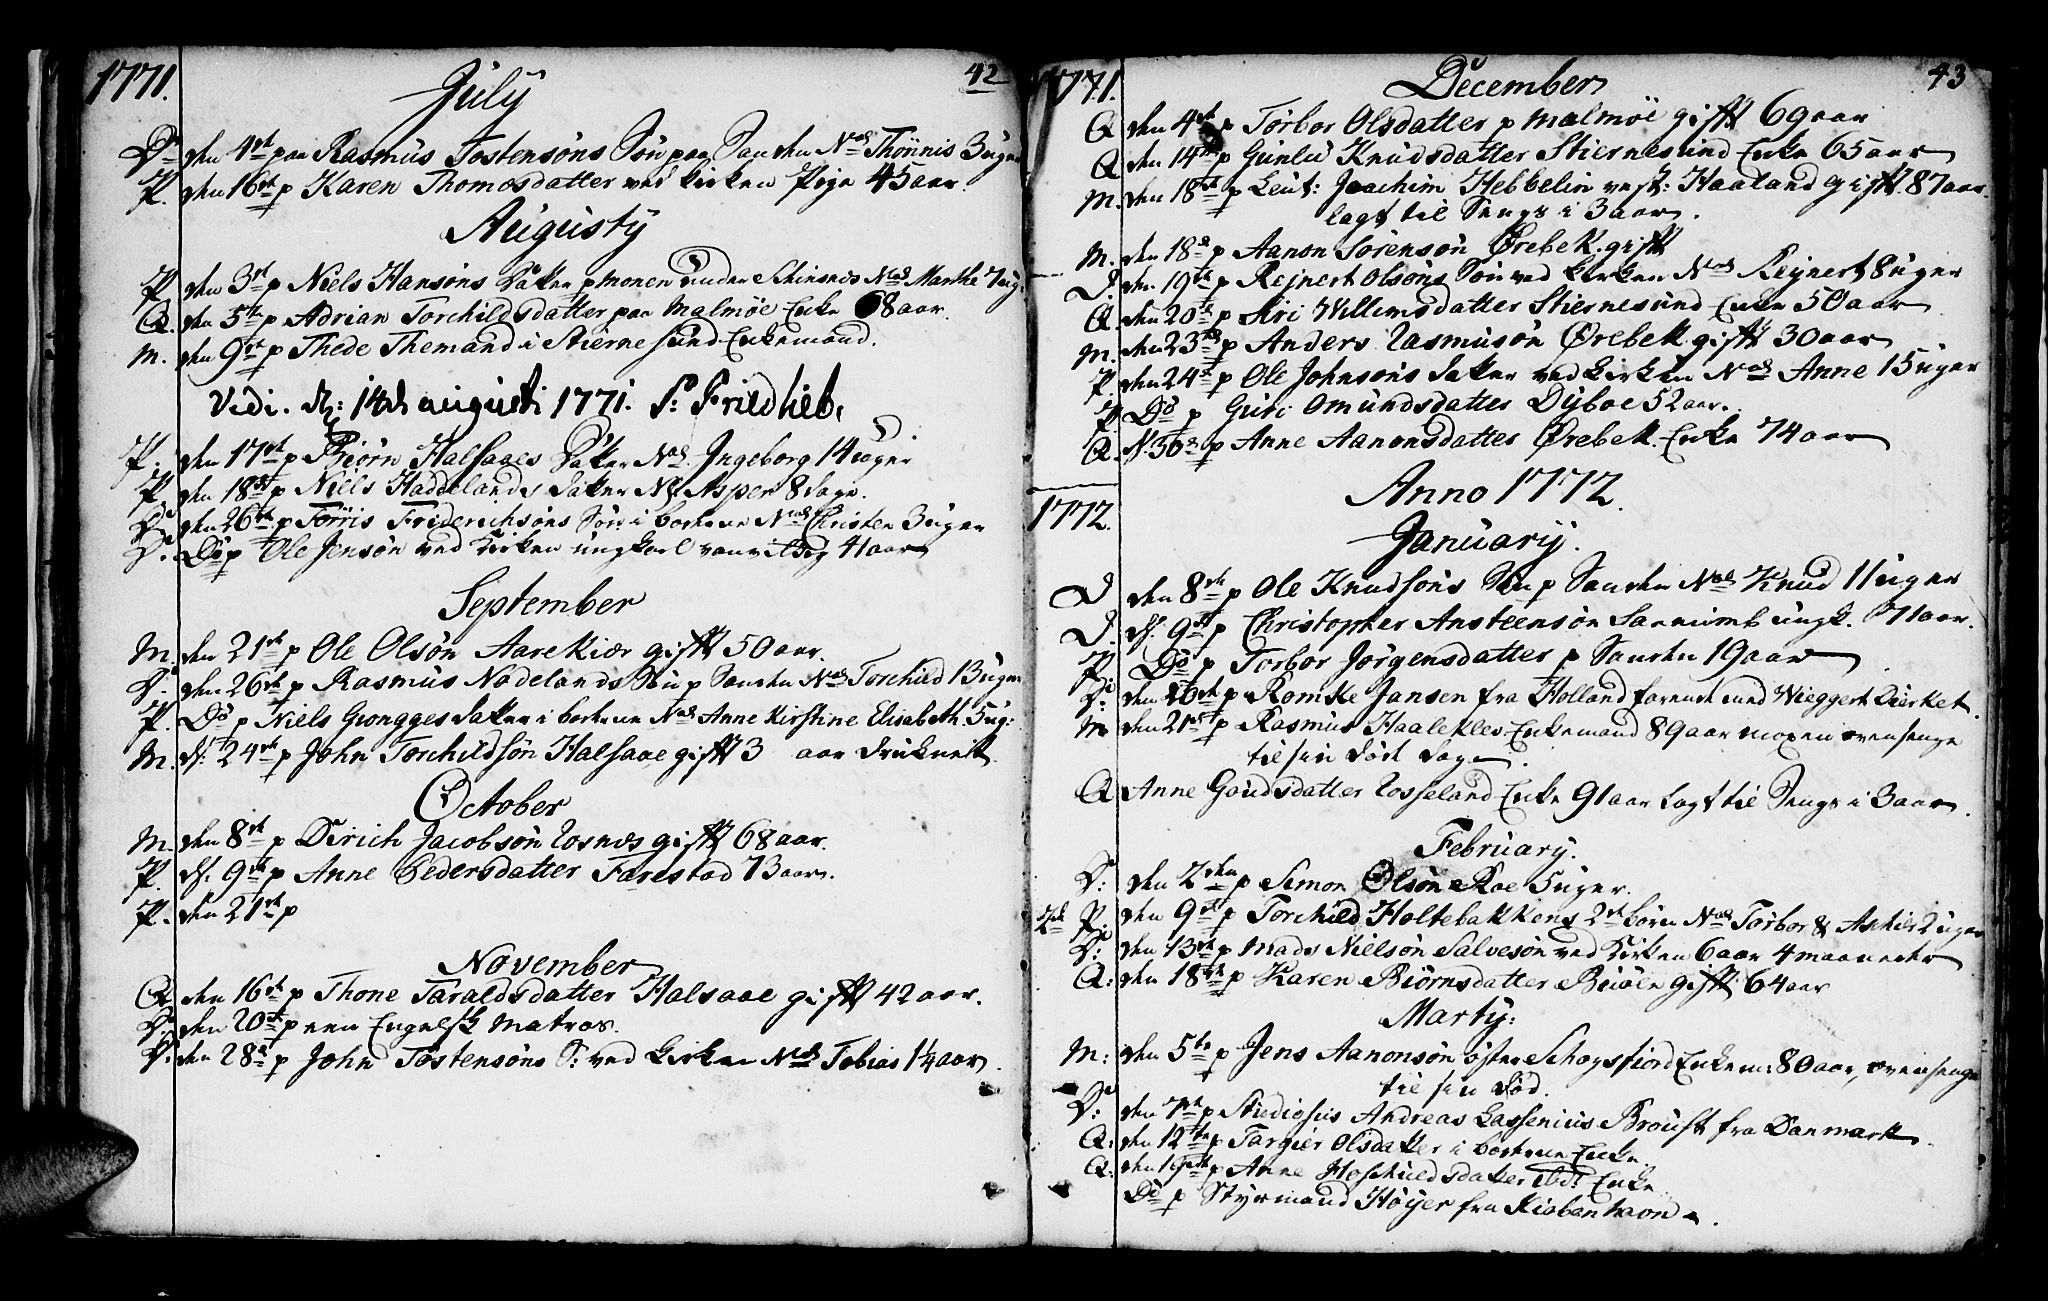 1771.
July
42
D: den 4de paa Rasmus Tostensøns Søn paa Sanden Nas Thönnis 3 uger
P. den 16de p Karen Thomasdatter ved Kirken Pige 45 aar.
Augusty
P. den 3de p Niels Hansøns Daater p monen under Skinsnes Nas Marthe 7 ug:
Q. den 5te p Adrian Torchildsdatter paa Malmøe Enke 68 aar.
M. den 9de p Thede Themand i Stiernesund Enkemand.
Vidi. d: 14de augusti 1771. P: Friedlieb.
P. den 17de p Biørn Halsaaes Daater Nas. Ingeborg 14 uger
P. den 18de p Niels Haddelands Daater N: Asper 8 dage.
D: den 26de p Tönis Friderichsøns Søn i Nas Christen 3 uger
D: Do p Ole Jensøn ved Kirken ungkarl 41 aar
September
M. den 21de p Ole Olsøn Aarekiær gift 50 aar.
D: den 26de p Rasmus Nodelands Søn p Sanden Nas Torchild 13 uger
P. Do p Niels Giongges Daater i Nas Anne Kirstine Elisabeth. 5 ug:
M. d: 24de p John Torchildsøn Halsaae gift 3 aar druknet.
October
M. den 8de p Dirich Jacobsøn Rosnes gift 68 aar.
P. d: 9de p Anne Pedersdatter Farestad 73 aar.
P. den 21de p
November
Q. den 16de p Thone Taraldsdatter Halsaae gift 42 aar.
D: den 20de p een Engelsk Matros.
D: den 28de p John Tostensøns S: ved Kirken Nas Tobias 1¼ aar.
1771.
December
43
Q. den 4de p Torbor Olsdatter p Malmöe gift 69 aar
Q. den 14de p Gunlu Knudsdatter Stiernesund Enke 65 aar
M. den 18de p Leut: Joachim Hebbelin vest: Haaland gift. 87 aar.
lagt til Sengs i 3 aar.
M. den 18de p Aanon Sørensøn Ørebek. gift
D. den 19de p Rejnert Olsøns Søn ved Kirken Nas Rejnert 8 uger
Q. den 20de p Siri Willumsdatter Stiernesund Enke 50 aar
M. den 23de p Anders Rasmusøn Ørebek gift 30 aar
P. den 24de p Ole Johnsøns Daater ved Kirken Nas Anne 15 uger
P Do p Guri Omundsdatter Dyboe 52 aar.
Q. d: 30de p Anne Aanonsdatter Ørebek. Enke 74 aar
Anno 1772.
1772.
January.
D den 8de p Ole Knudsøns Søn p Sanden Nas Knud 11 uger
D. d: 9de p Christopher Ansteensøn Sannumb ungk. 71 aar.
P. Do p Torbor Jørgensdatter p Sanden 19 aar
D: den 16de p Romke Jansen fra Holland farende med Wieggert Dierket.
M den 21de p Rasmus Haalekles Enkemand 89 aar
til sin død dag.
Q Anne Goudsdatter Rosseland Enke 91 aar lagt til Sengs i 3 aar.
February.
D: den 2den p Simon Olsøn Roe 5 uger.
2de P: den 9de p Torchild Holtebakkens 2de børn Nas Torbor & Askier 2 uger
D: den 13de p Mads Nielsøn Salvesøn ved Kirken 6 aar 4 maaneder
Q: den 18de p Karen Biørnsdatter Biuøen gift 64 aar
Marty:
M: den 5te p Jens Aanonsøn øster Schogsfiord Enkem: 80 aar,
til sin død.
D: den 7de p Studiosus Andreas Lassenius Broust fra Danmark.
Q: den 12te p Targier Olsdatter i Enke.
Q: den 19de p Anne Hoschuldsdatter ibd: Enke
Do p Styrmand Høijer fra Kiøbenhavn.